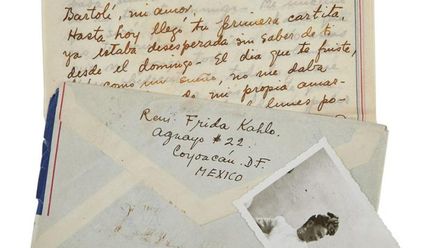 Bartolí, mi amor.
Hasta hoy llegó tu primera cartita,
ya estaba desesperada sin saber de ti
desde el domingo. El dia que te fuiste,
como un sueño, no me daba
de mi propia amar-
lunes po-
Rem. Frida Kahlo.
Aguayo # 22.
Coyoacán. D.F.
MEXICO